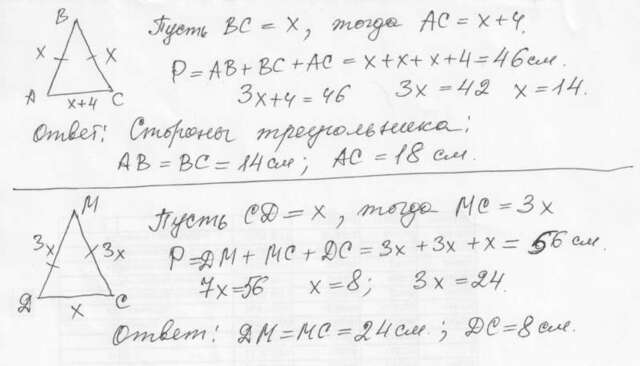 B
Пусть BC = x, тогда AC = x+4.
x x
P = AB + BC + AC = x + x + x + 4 = 46 см.
A x+4 C
3x+4 = 46 3x = 42 x = 14.
Ответ: Стороны треугольника:
AB = BC = 14 см; AC = 18 см.
M
Пусть CД = x, тогда MC = 3x
3x 3x
P = ДM + MC + ДC = 3x + 3x + x = 56 см.
Д x C
7x = 56 x = 8; 3x = 24.
Ответ: ДM = MC = 24 см.; ДC = 8 см.